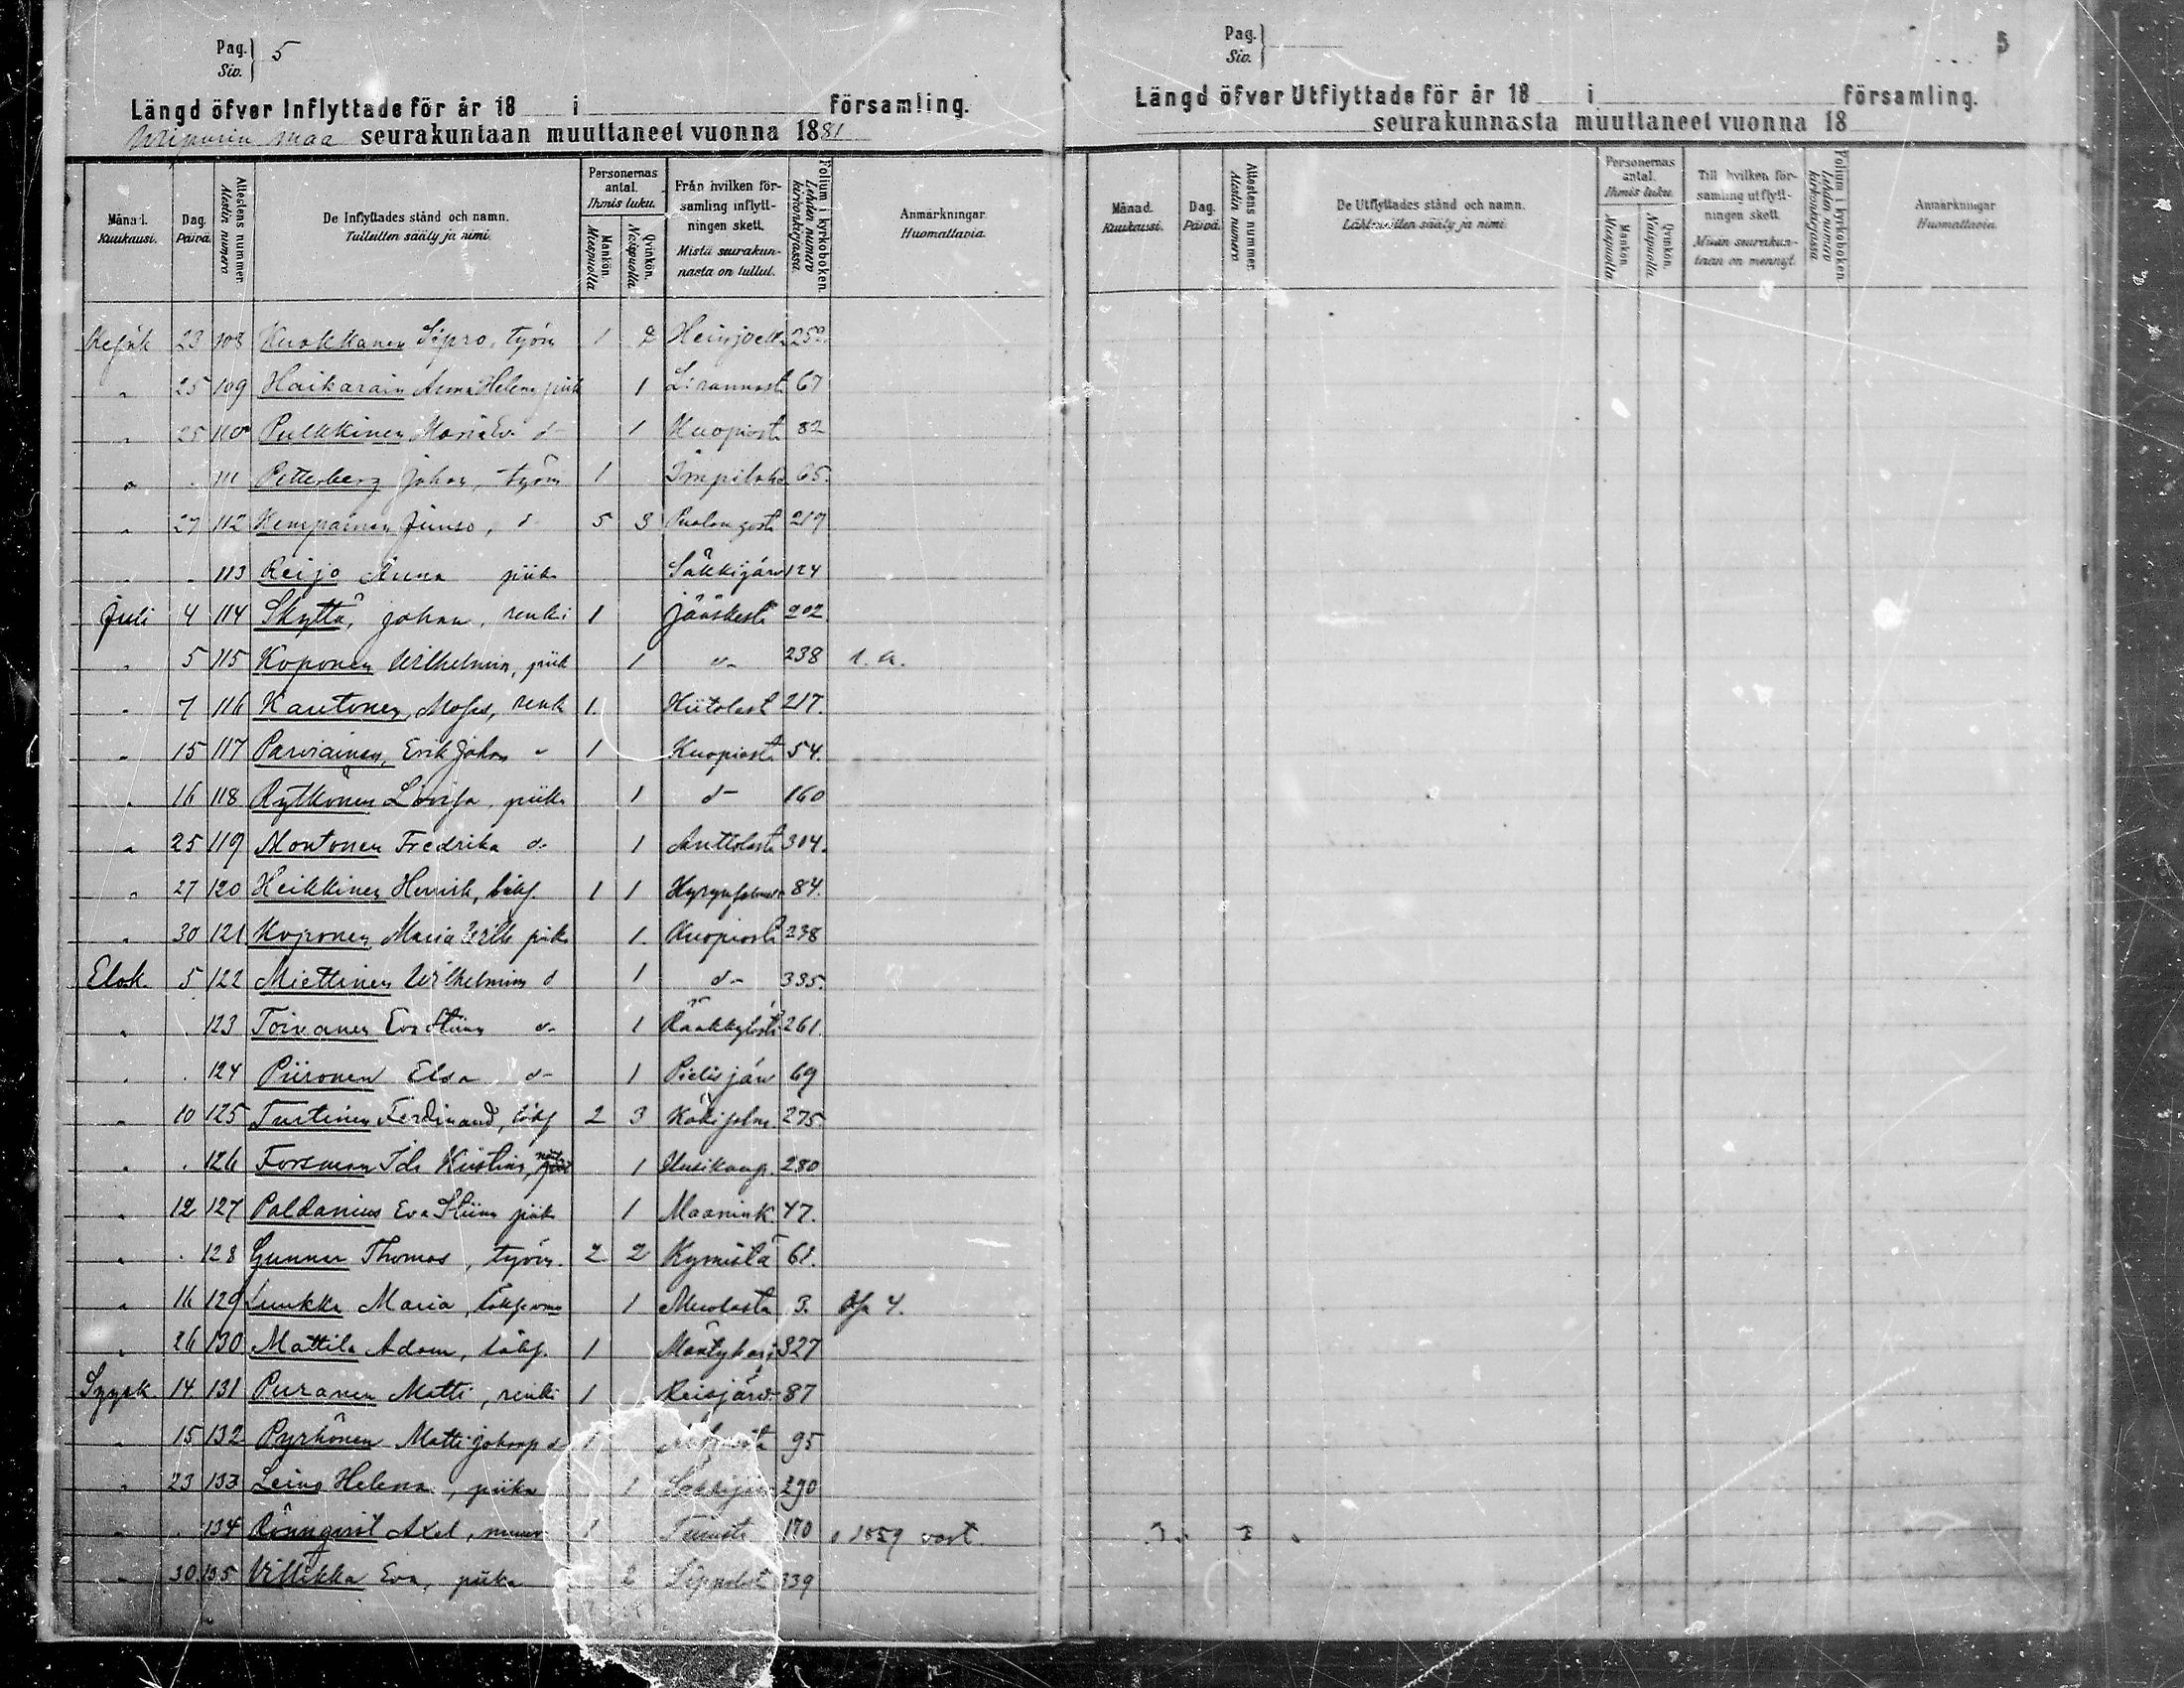 Pag. Siv. } 5
Längd öfver Inflyttade för år 18 i församling.
Wiipurin maa seurakuntaan muuttaneet vuonna 1881
Månad. Kuukausi. | Dag. Päivä. | Attestens nummer. Atestin numero | De Inflyttades stånd och namn. Tulleitten sääty ja nimi. | Personernas antal. Ihmis luku. Mankön. Miespuolia | Qvinkön. Naispuolia | Från hvilken församling inflyttningen skett. Mistä seurakunnasta on tullut. | Folium i kyrkoboken. Lehden numero kirkonkirjassa. | Anmärkningar. Huomattavia.
Kesäk 23 108 Kuokkanen Sipro, työm 1 2 Heinjoelt 252
" 25 109 Haikarain Anna Helena piik 1 L: rannast 67
" 25 110 Pulkkinen Maria Ev. d- 1 Kuopiost 82
" " 111 Petterberg Johan, työm 1 Impilaks 65.
" 27 112 Kempainen Junso, d- 5 3 Puolangost 219
" " 113 Reijo Anna piik Säkkijärv 124
Juli 4 114 Skyttä, Johan, renki 1 Jääskestä 202
" 5 115 Koponen Wilhelmin, piik 1 " 238
" 7 116 Kautonen, Moses, renk 1. Hiitolast 217.
" 15 117 Parviainen, Erik Johan " 1 Kuopiost 54.
" 16 118 Rytkönen Lovisa, piika 1 d- 160
" 25 119 Montonen Fredrika d- 1 Anttolast 304.
" 27 120 Heikkinen Henrik, lökf. 1 1 84.
" 30 121 Koponen Maria Wilh piik 1. Kuopiosta 238
Elok. 5 122 Miettinen Wilhelmin d 1 d- 335.
" " 123 Toivanen Eva Stiina d- 1 Rääkkylästä 261.
" " 124 Piironen Elsa d- 1 Pielisjärv 69
" 10 125 Turtinen Ferdinand, lökf 2 3 Käkisalm 275
" " 126 Forsman Ida Kristina, 1 Uusikaup. 280
" 12 127 Paldanius Eva Stiina piik 1 Maanink. 47.
" " 128 Gunner Thomas, työm. 2 2 Kymistä 61.
" 16 129 Luukka Maria, 1 Muolasta 3. 4.
" 26 130 Mattila Adam, lökf. 1 Mäntyharj 327
Syysk. 14. 131 Puranen Matti, renki 1 Reisjärv 87
" 15 132 Pyrhönen Matti Johanp d- 1 95
" 23 133 Leino Helena, piika 1 Säkkijärv 290
" " 134 Rönnqvist Axel, 1 170 s 1859
" 30 135 Villikka Eva, piika 2 339
Pag. Siv. }
5
Längd öfver Utflyttade för år 18 i församling.
seurakunnasta muuttaneet vuonna 18
Månad. Kuukausi. | Dag. Päivä. | Attestens nummer. Atestin numero | De Utflyttades stånd och namn. Lähteneitten sääty ja nimi. | Personernas antal. Ihmis luku. Mankön. Miespuolia | Qvinkön. Naispuolia | Till hvilken församling utflyttningen skett. Mihin seurakuntaan on mennyt. | Folium i kyrkoboken. Lehden numero kirkonkirjassa | Anmärkningar. Huomattavia.